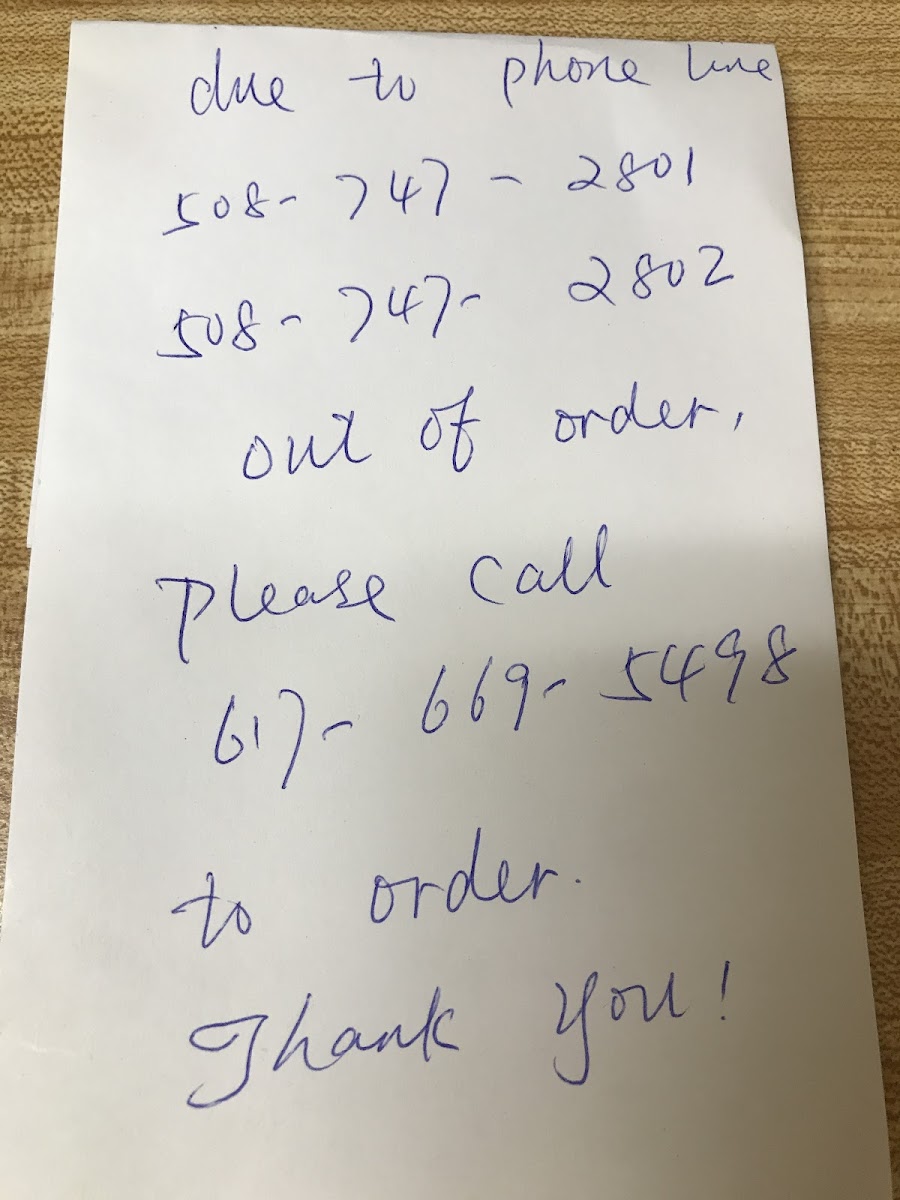 due to phone line
508- 747 - 2801
508- 747- 2802
out of order,
please call
617- 669- 5498
to order.
Thank you!